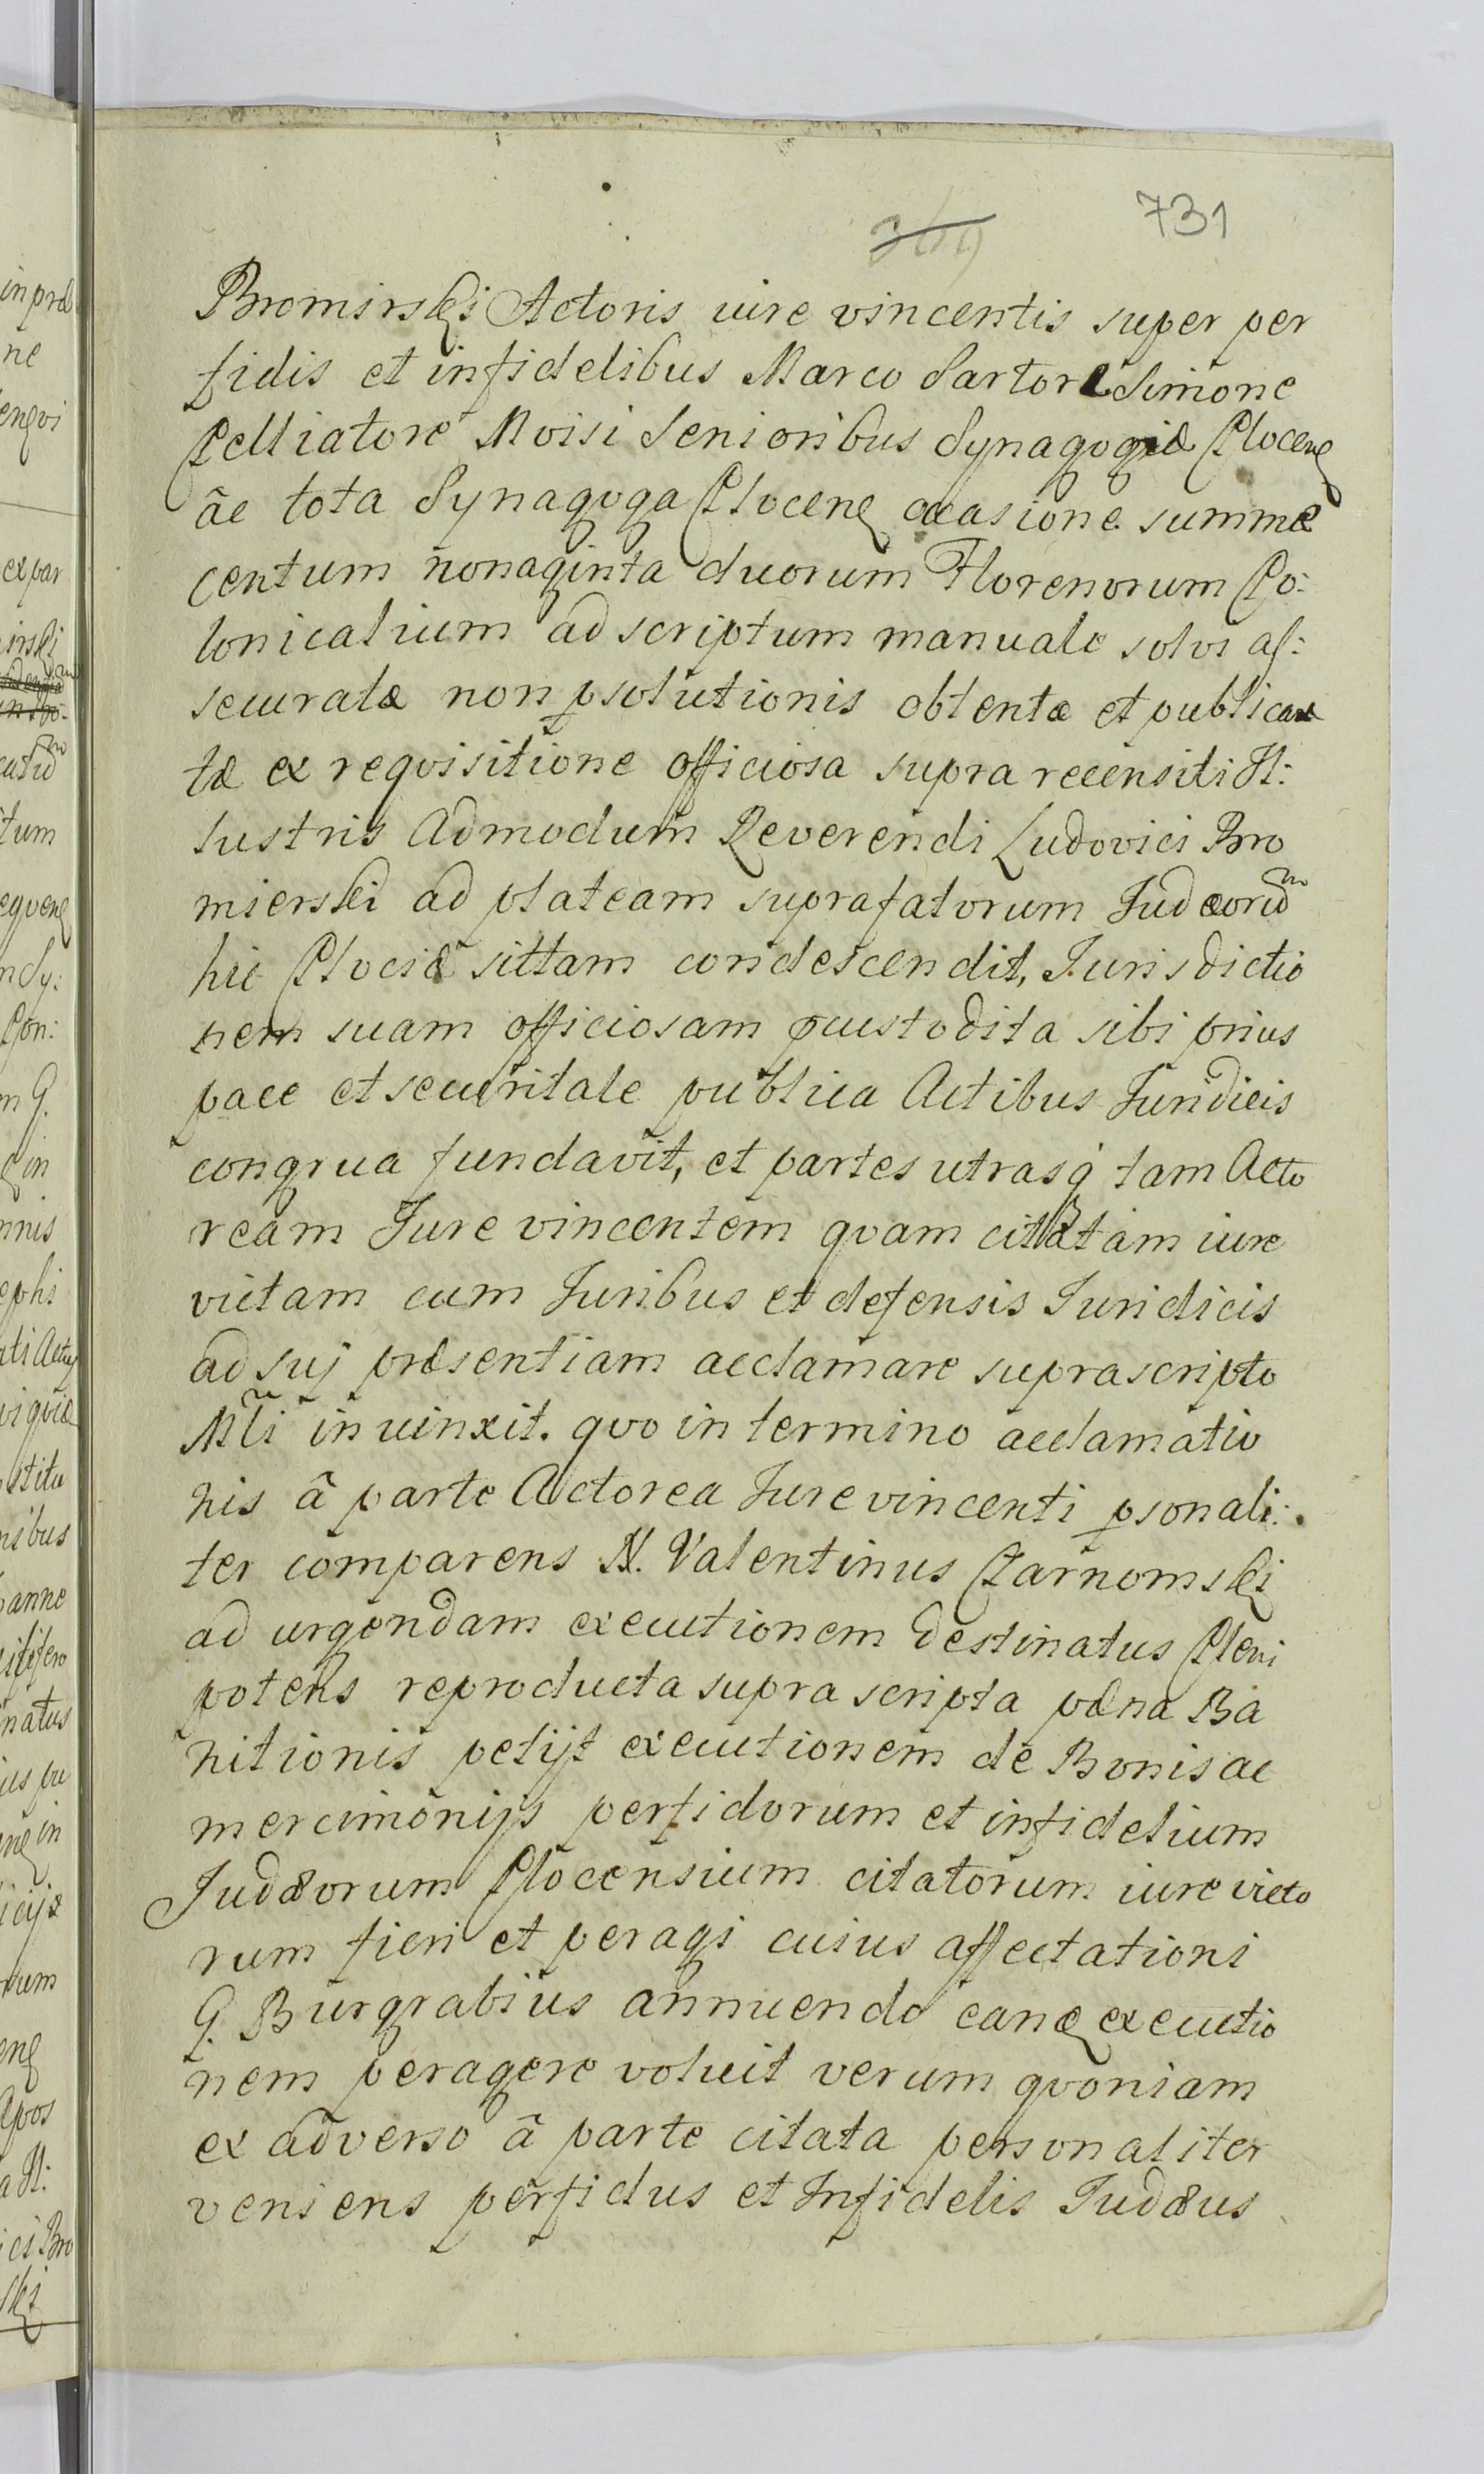 731
Bromirski Actoris iure vincentis super per
fidis et infidelibus Marco Sartore Simone
Pelliatore Moisi Senioribus Synagogæ Plocen
ac tota Synagoga Plocen occasione summæ
centum nonaginta duorum Florenorum Po:
lonicalium ad scriptum manuale solvi as:
securatæ non psolutionis obtentæ et publica
tæ ex requisitione officiosa supra recensiti Il:
lustris Admodum Reverendi Ludovici Bro
mierski ad plateam suprafatorum Judæorum
hic Plociæ sittam condescendit, Jurisdictio
nem suam officiosam custodita sibi prius
pace et securitate publica Actibus Juridicis
congrua fundavit, et partes utrasq tam Acto
ream Jure vincentem quam citatam iure
victam cum Juribus et defensis Juridicis
ad suj præsentiam acclamare suprascripto
Mli iniunxit. quo in termino acclamatio
nis â parte Actorea Jure vincenti psonali:
ter comparens N. Valentinus Czarnomski
ad urgendam executionem destinatus Pleni
potens reproducta supra scripta pæna Ba
nitionis petijt executionem de Bonis ac
mercimonijs perfidorum et infidelium
Judæorum Plocensium citatorum iure victo
rum fieri et peragi cuius affectationi
G. Burgrabius annuendo eanq executio
nem peragere voluit verum quoniam
ex adverso â parte citata personaliter
veniens perfidus et Infidelis Judæus